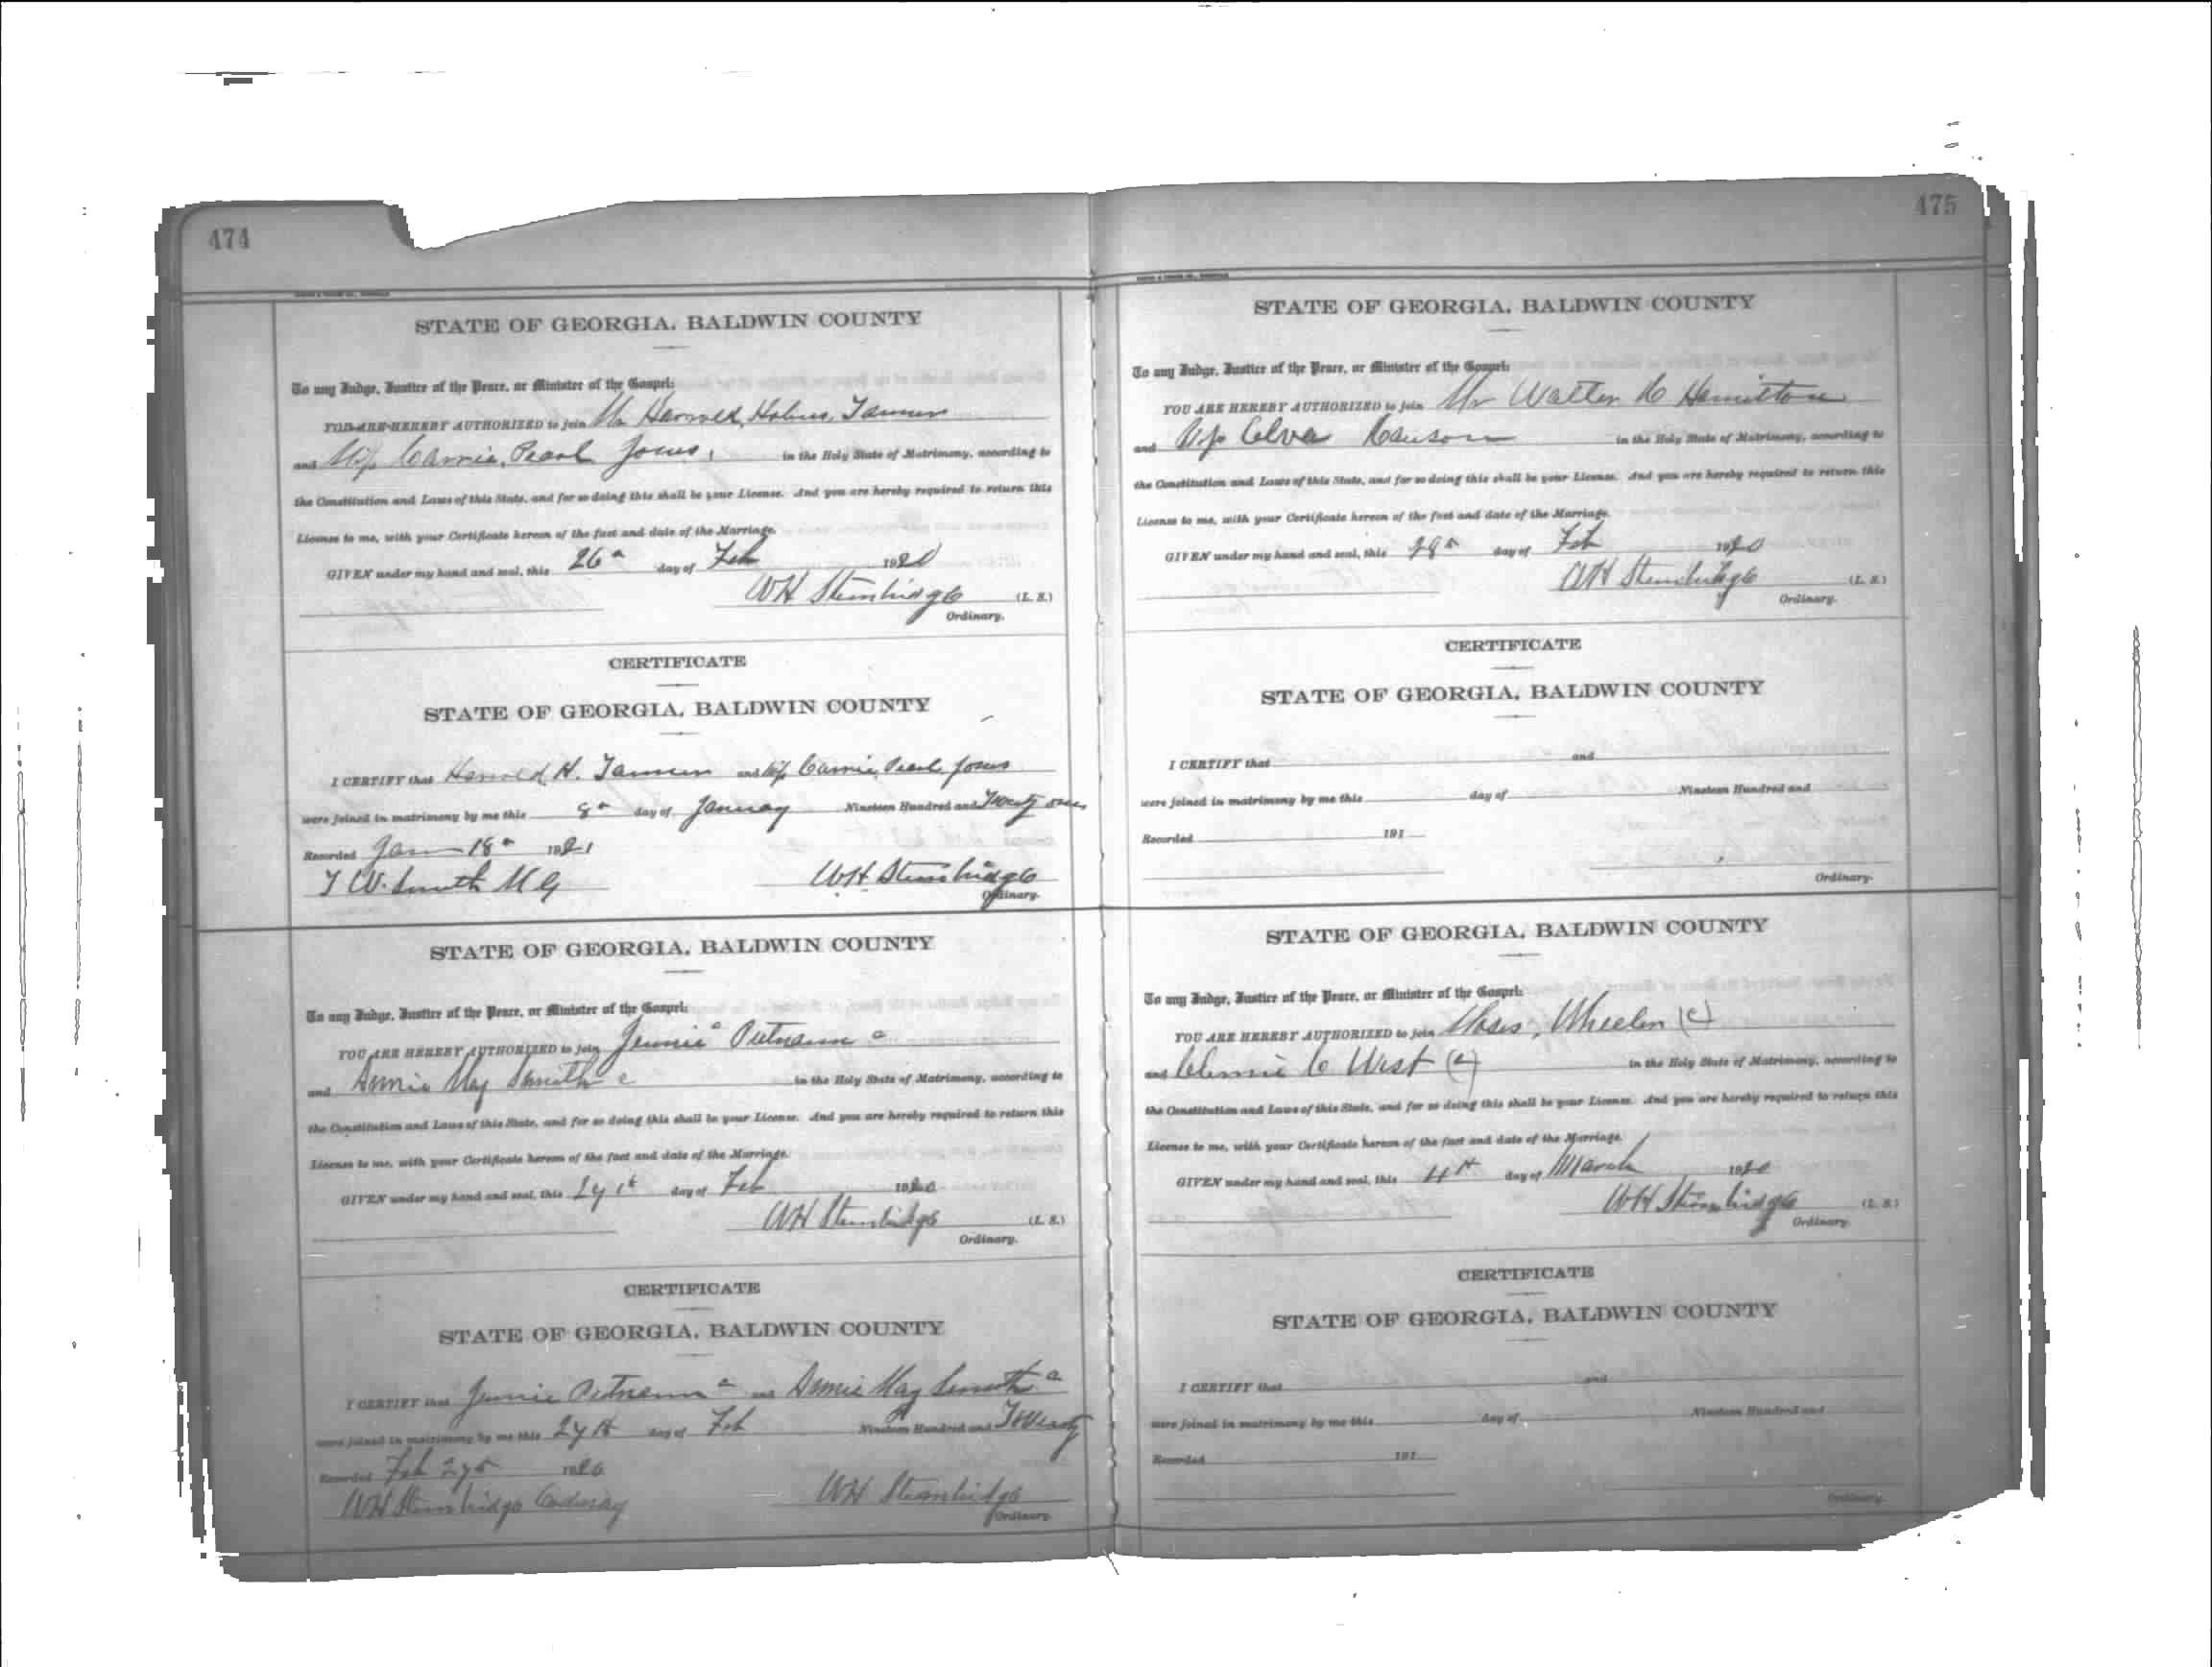 474
STATE OF GEORGIA, BALDWIN COUNTY
To any Judge, Justice of the Peace, or Minister of the Gospel:
YOU ARE HEREBY AUTHORIZED to join Mr Harrold Holmes Tanner
and Miss Carrie Pearl Jones, in the Holy State of Matrimony, according to
the Constitution and Laws of this State, and for so doing this shall be your License. And you are hereby required to return this
License to me, with your Certificate hereon of the fact and date of the Marriage.
GIVEN under my hand and seal, this 26th day of Feb 1920
WH Stembridge (L. S.)
Ordinary.
CERTIFICATE
STATE OF GEORGIA, BALDWIN COUNTY
I CERTIFY that Harrold H. Tanner and Miss Carrie Pearl Jones
were joined in matrimony by me this 8th day of January Nineteen Hundred and Twenty one
Recorded Jan 18th 1921
T W. Smith M G WH Stembridge
Ordinary.
STATE OF GEORGIA, BALDWIN COUNTY
To any Judge, Justice of the Peace, or Minister of the Gospel:
YOU ARE HEREBY AUTHORIZED to join Jimmie Putnam c
and Annie May Smith c in the Holy State of Matrimony, according to
the Constitution and Laws of this State, and for so doing this shall be your License. And you are hereby required to return this
License to me, with your Certificate hereon of the fact and date of the Marriage.
GIVEN under my hand and seal, this 27th day of Feb 1920
WH Stembridge (L. S.)
Ordinary.
CERTIFICATE
STATE OF GEORGIA, BALDWIN COUNTY
I CERTIFY that Jimmie Putnam c and Annie May Smith c
were joined in matrimony by me this 27th day of Feb Nineteen Hundred and Twenty
Recorded Feb 27th 1920
WH Stembridge Ordinary WH Stembridge
Ordinary.
475
STATE OF GEORGIA, BALDWIN COUNTY
To any Judge, Justice of the Peace, or Minister of the Gospel:
YOU ARE HEREBY AUTHORIZED to join Mr Walter C Hamilton
and Miss Elva in the Holy State of Matrimony, according to
the Constitution and Laws of this State, and for so doing this shall be your License. And you are hereby required to return this
License to me, with your Certificate hereon of the fact and date of the Marriage.
GIVEN under my hand and seal, this 28th day of Feb 1920
WH Stembridge (L. S.)
Ordinary.
CERTIFICATE
STATE OF GEORGIA, BALDWIN COUNTY
I CERTIFY that and
were joined in matrimony by me this day of Nineteen Hundred and
Recorded 191
Ordinary.
STATE OF GEORGIA, BALDWIN COUNTY
To any Judge, Justice of the Peace, or Minister of the Gospel:
YOU ARE HEREBY AUTHORIZED to join Moses Wheeler (c)
and Clemmie C West (c) in the Holy State of Matrimony, according to
the Constitution and Laws of this State, and for so doing this shall be your License. And you are hereby required to return this
License to me, with your Certificate hereon of the fact and date of the Marriage.
GIVEN under my hand and seal, this 4th day of March 1920
WH Stembridge (L. S.)
Ordinary.
CERTIFICATE
STATE OF GEORGIA, BALDWIN COUNTY
I CERTIFY that and
were joined in matrimony by me this day of Nineteen Hundred and
Recorded 191
Ordinary.